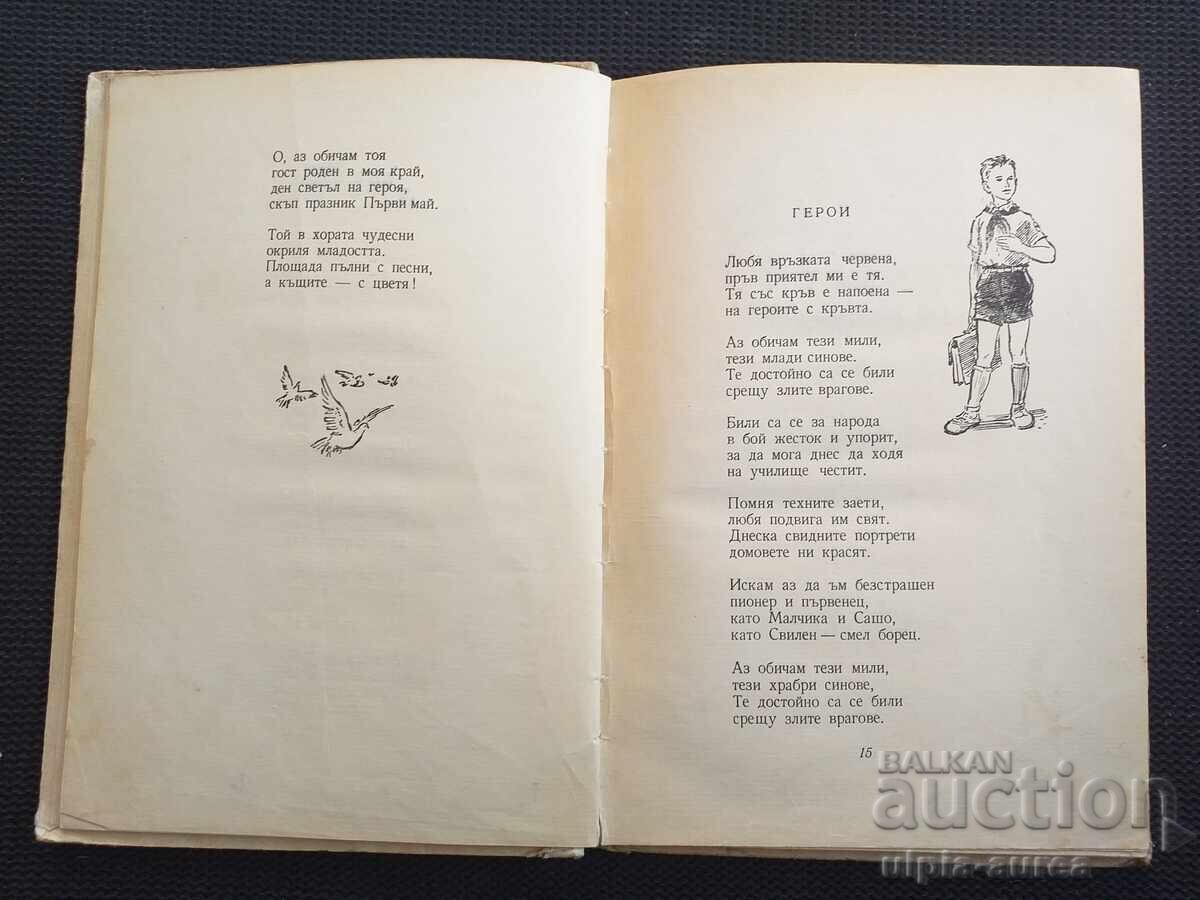 О, аз обичам тоя
гост роден в моя край,
ден светъл на героя,
скъп празник Първи май.
Той в хората чудесни
окриля младостта.
Площада пълни с песни,
а къщите — с цветя!
ГЕРОИ
Любя връзката червена,
пръв приятел ми е тя.
Тя със кръв е напоена —
на героите с кръвта.
Аз обичам тези мили,
тези млади синове.
Те достойно са се били
срещу злите врагове.
Били са се за народа
в бой жесток и упорит,
за да мога днес да ходя
на училище честит.
Помня техните заети,
любя подвига им свят.
Днеска свидните портрети
домовете ни красят.
Искам аз да ъм безстрашен
пионер и първенец,
като Малчика и Сашо,
като Свилен — смел борец.
Аз обичам тези мили,
тези храбри синове,
Те достойно са се били
срещу злите врагове.
15
BALKAN
auction
ulpia-aurea